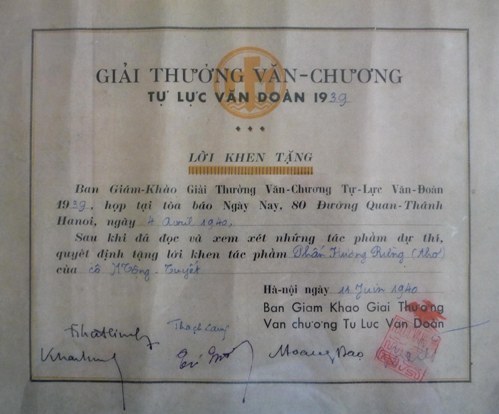 GIẢI THƯỞNG VĂN-CHƯƠNG
TỰ LỰC VĂN ĐOÀN 1939
LỜI KHEN TẶNG
Ban Giám-Khảo Giải Thưởng Văn-Chương Tự-Lực Văn-Đoàn
1939, họp tại tòa báo Ngày Nay, 80 Đường Quan-Thánh
Hanoi, ngày 4 Avril 1940.
Sau khi đã đọc và xem xét những tác phẩm dự thi,
quyết định tặng lời khen tác phẩm Phấn Hương Rừng (thơ)
của cô Mộng-Tuyết
Hà-nội ngày 11 Juin 1940
Ban Giam Khao Giai Thuong
Van chương Tu Luc Van Doàn
Nhatlinh
Thạch Lam
Khaihung
Tú Mỡ
Hoang Dao